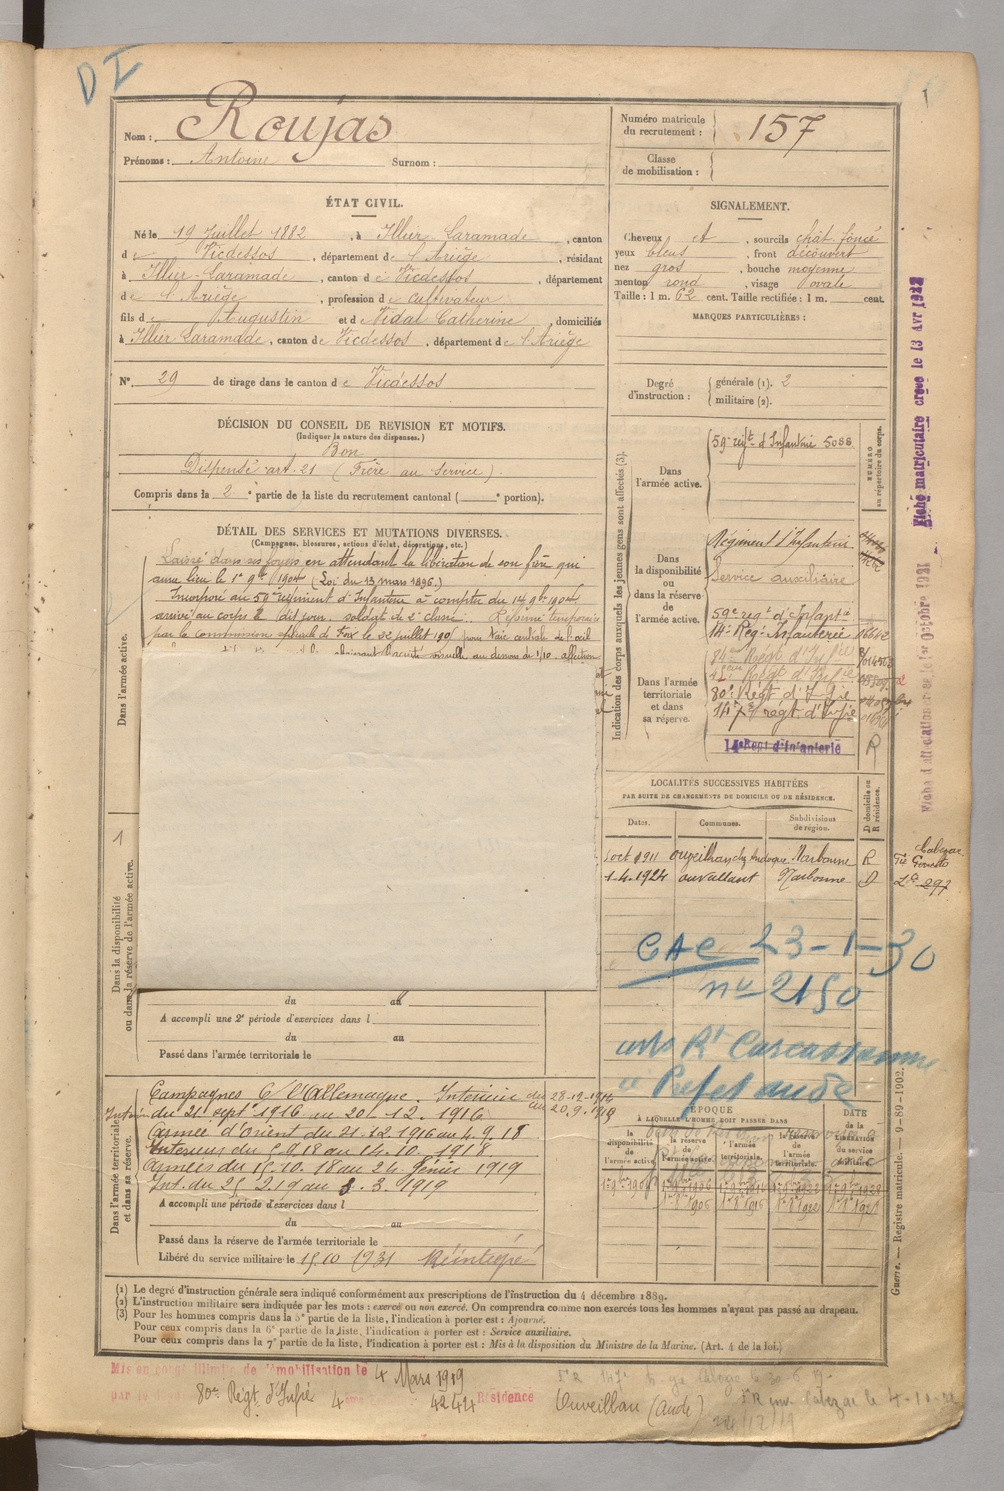 D I
Nom : Roujas
Prénoms : Antoine Surnom :
Numéro matricule
du recrutement : 157
Classe
de mobilisation :
ÉTAT CIVIL.
Né le 19 Juillet 1882, à Illier Laramade, canton
de Vicdessos, département de l'Ariège, résidant
à Illier Laramade, canton de Vicdessos, département
de l'Ariège, profession de cultivateur
fils de Augustin et de Vidal Catherine, domiciliés
à Illier Laramade, canton de Vicdessos, département de l'Ariège
N° 29 de tirage dans le canton de Vicdessos
SIGNALEMENT.
Cheveux et, sourcils chât. foncé
yeux bleus, front découvert
nez gros, bouche moyenne
menton rond, visage ovale
Taille : 1 m. 62 cent. Taille rectifiée : 1 m. cent.
MARQUES PARTICULIÈRES :
Degré
d'instruction :
générale (1). 2
militaire (2).
DÉCISION DU CONSEIL DE REVISION ET MOTIFS.
(Indiquer la nature des dispenses.)
Bon
Dispensé art. 21 (Frère au Service).
Compris dans la 2e partie de la liste du recrutement cantonal (e portion).
DÉTAIL DES SERVICES ET MUTATIONS DIVERSES.
(Campagnes, blessures, actions d'éclat, décorations, etc.)
Laissé dans ses foyers en attendant la libération de son frère qui
aura lieu le 1er 9bre 1904 (Loi du 13 mars 1896.)
Incorporé au 59e régiment d'Infanterie à compter du 14 9bre 1904
arrivé au corps le dit jour soldat de 2e classe. Réformé temporaire
par la commission spéciale de Foix le 22 juillet 190 pour Taie centrale de l'oeil
visuelle au dessous de 1/10. affection
Dans l'armée active.
1
Dans la disponibilité
ou dans la réserve de l'armée active.
du au
A accompli une 2e période d'exercices dans l
du au
Passé dans l'armée territoriale le
Dans l'armée territoriale
et dans sa réserve.
Campagnes C/ l'Allemagne. Intérieur du 28-12-1914
au 20.9.1916
Intérieur du 21 sept 1916 au 20.12.1916
Armée d'Orient du 21-12 1916 au 4.9.18
Intérieur du 5.9.18 au 14.10.1918
Armées du 15.10.18 au 24 février 1919
Int. du 25 2 19 au 3.3.1919
A accompli une période d'exercices dans l
du au
Passé dans la réserve de l'armée territoriale le
Libéré du service militaire le 15.10 1931 Réintégré
Indication des corps auxquels les jeunes gens sont affectés (3).
NUMÉRO
au répertoire du corps.
Dans
l'armée active.
59e regt d'Infanterie 5088
Dans
la disponibilité
ou
dans la réserve
de
l'armée active.
Régiment d'Infanterie
Service auxiliaire
59e regt d'Infantie
14e Reg. Infanterie 16642
Dans l'armée
territoriale
et dans
sa réserve.
84e Regt d'Infie
80e Regt d'Infie
147e régt. d'Infie
14e Regt d'Infanterie R
LOCALITÉS SUCCESSIVES HABITÉES
PAR SUITE DE CHANGEMENTS DE DOMICILE OU DE RÉSIDENCE.
Dates. Communes. Subdivisions
de région. D domicile ou
R résidence.
1 oct 1911 Narbonne R
1.4.1924 ouvaillant Narbonne D
CAC 23-1-30
no 2150
Rt Carcassonne
Prefet aude
ÉPOQUE
À LAQUELLE L'HOMME DOIT PASSER DANS
DATE
DE LA
LIBÉRATION
du service
militaire.
la
disponibilité
de
l'armée active.
la réserve
de
l'armée active.
l'armée
territoriale.
la réserve
de
l'armée
territoriale.
Fiche matriculaire créée le 13 Avr 1922
Guerre. — Registre matricule. — 9-89-1902.
(1) Le degré d'instruction générale sera indiqué conformément aux prescriptions de l'instruction du 4 décembre 1889.
(2) L'instruction militaire sera indiquée par les mots : exercé ou non exercé. On comprendra comme non exercés tous les hommes n'ayant pas passé au drapeau.
(3) Pour les hommes compris dans la 5e partie de la liste, l'indication à porter est : Ajourné.
Pour ceux compris dans la 6e partie de la liste, l'indication à porter est : Service auxiliaire.
Pour ceux compris dans la 7e partie de la liste, l'indication à porter est : Mis à la disposition du Ministre de la Marine. (Art. 4 de la loi.)
Mis en congé illimité de démobilisation le 4 Mars 1919
80e Régt d'Infie 4 4242 Résidence Ouveillan (Aude)
24/12/19